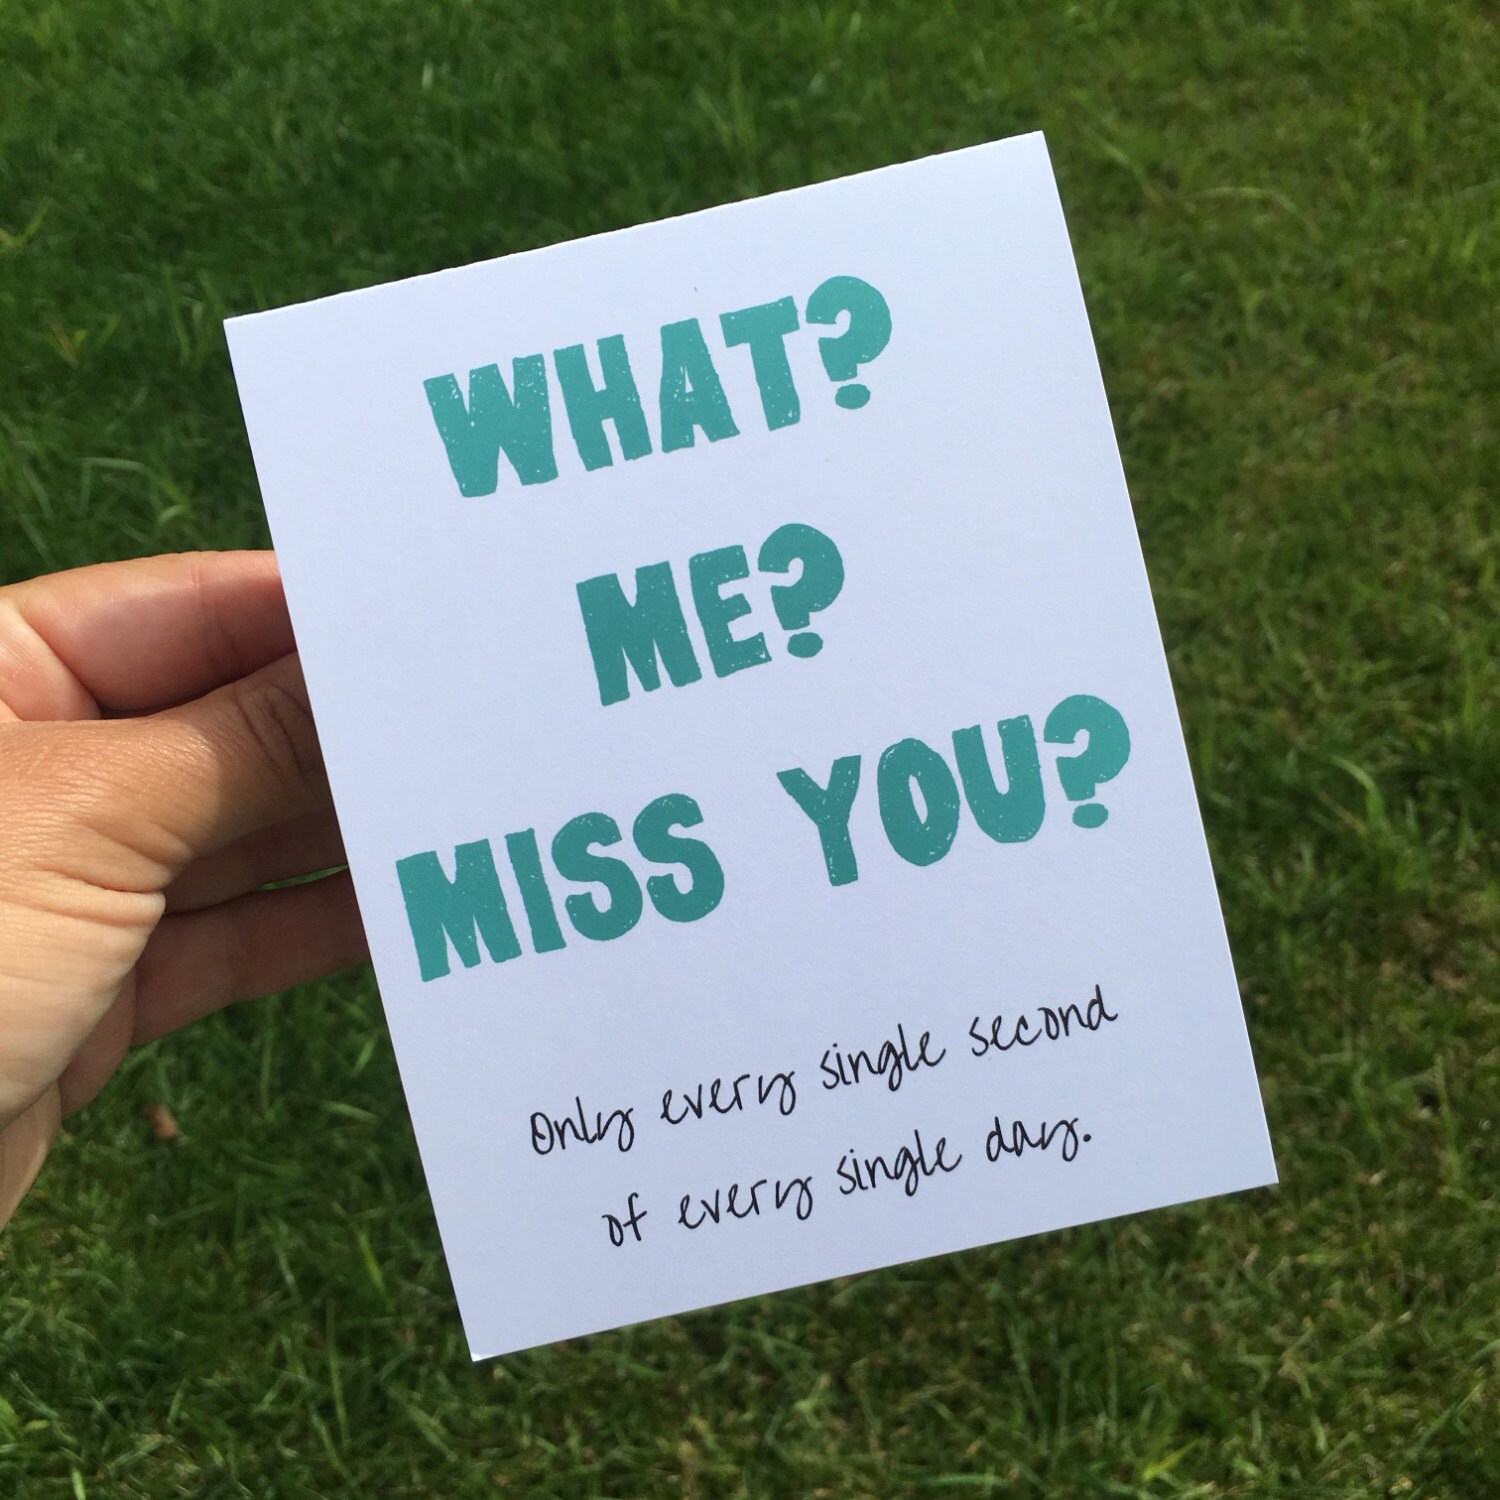 WHAT?
ME?
MISS YOU?
Only every single second
of every single day.